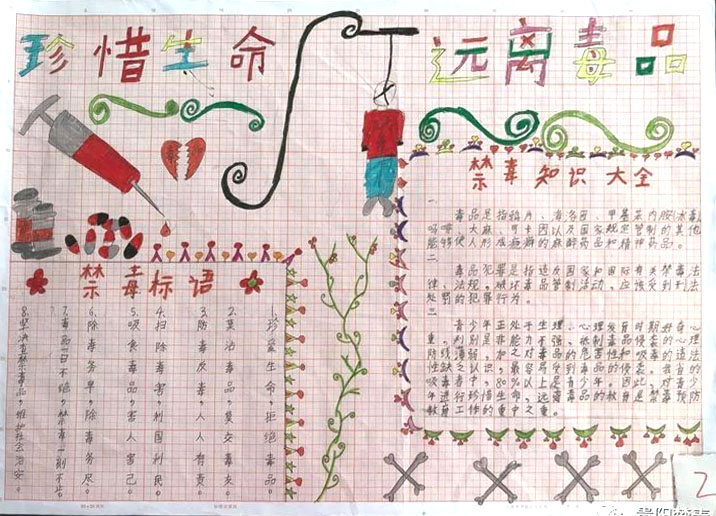 珍惜生命
远离毒品
禁毒知识大全
一
毒品是指鸦片、海洛因、甲基苯丙胺(冰毒)
吗啡、大麻、可卡因以及国家规定管制的其他
能够使人形成瘾癖的麻醉药品和精神药品。
二
毒品犯罪是指违反国家和国际有关禁毒法
律、法规，破坏毒品管制活动，应该受到刑法
处罚的犯罪行为。
三
青少年正处于生理、心理发育时期好奇心
重，判别是非能力不强，抵制毒品侵袭的心理
防线薄弱，加之对毒品的危害性和吸毒的违法
性缺乏认识，最容易受到毒品的侵袭。我省的
吸毒者中，80%以上是青少年。因此，对青少
年进行珍惜生命，远离毒品的教育是禁毒预防
教育工作的重中之重。
禁毒标语
1.珍爱生命，拒绝毒品。
2.莫沾毒品，莫交毒友
3.防毒反毒，人人有责
4.扫除毒害，利国利民。
5.吸食毒品，害人害己。
6.除毒务早，除毒务尽。
7.毒品一日不绝，禁毒一刻不止。
8.坚决查禁毒品，维护社会治安。
2
贵阳禁毒